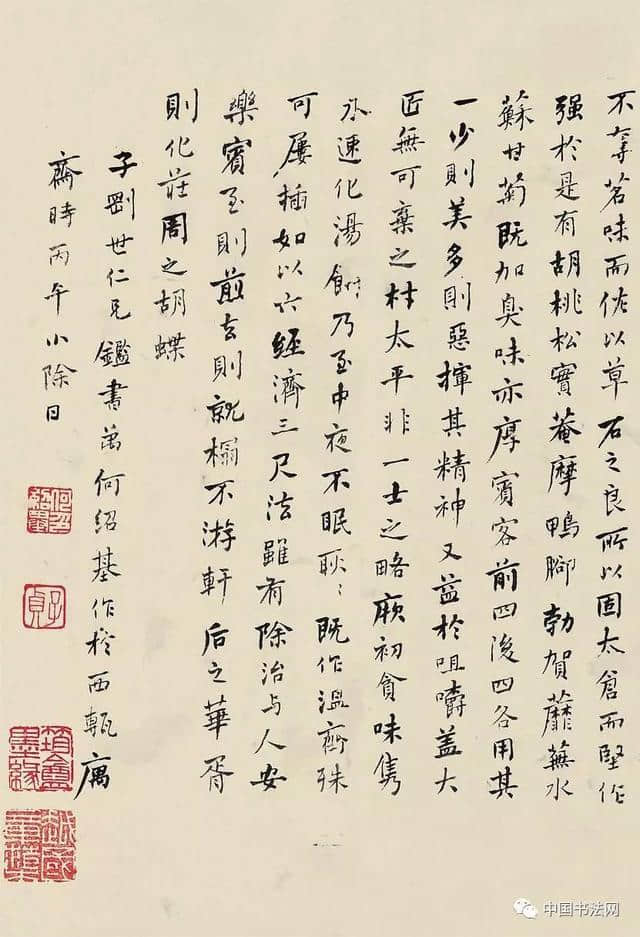 不奪茗味而佐以草石之良所以固太倉而堅作
强於是有胡桃松實菴摩鴨腳勃賀蘼蕪水
蘇甘菊既加臭味亦厚賓客前四後四各用其
一少則美多則惡揮其精神又益於咀嚼蓋大
匠無可棄之材太平非一士之略厥初貪味雋
永速化湯餅乃至中夜不眠耿〻既作溫齊殊
可屢插如以六經濟三尺法雖有除治与人安
樂賓至則煎去則就榻不游軒后之華胥
則化莊周之胡蝶
子剛世仁兄鑑書何紹基作於西甎寓
齋時丙午小除日
子貞
中国书法网